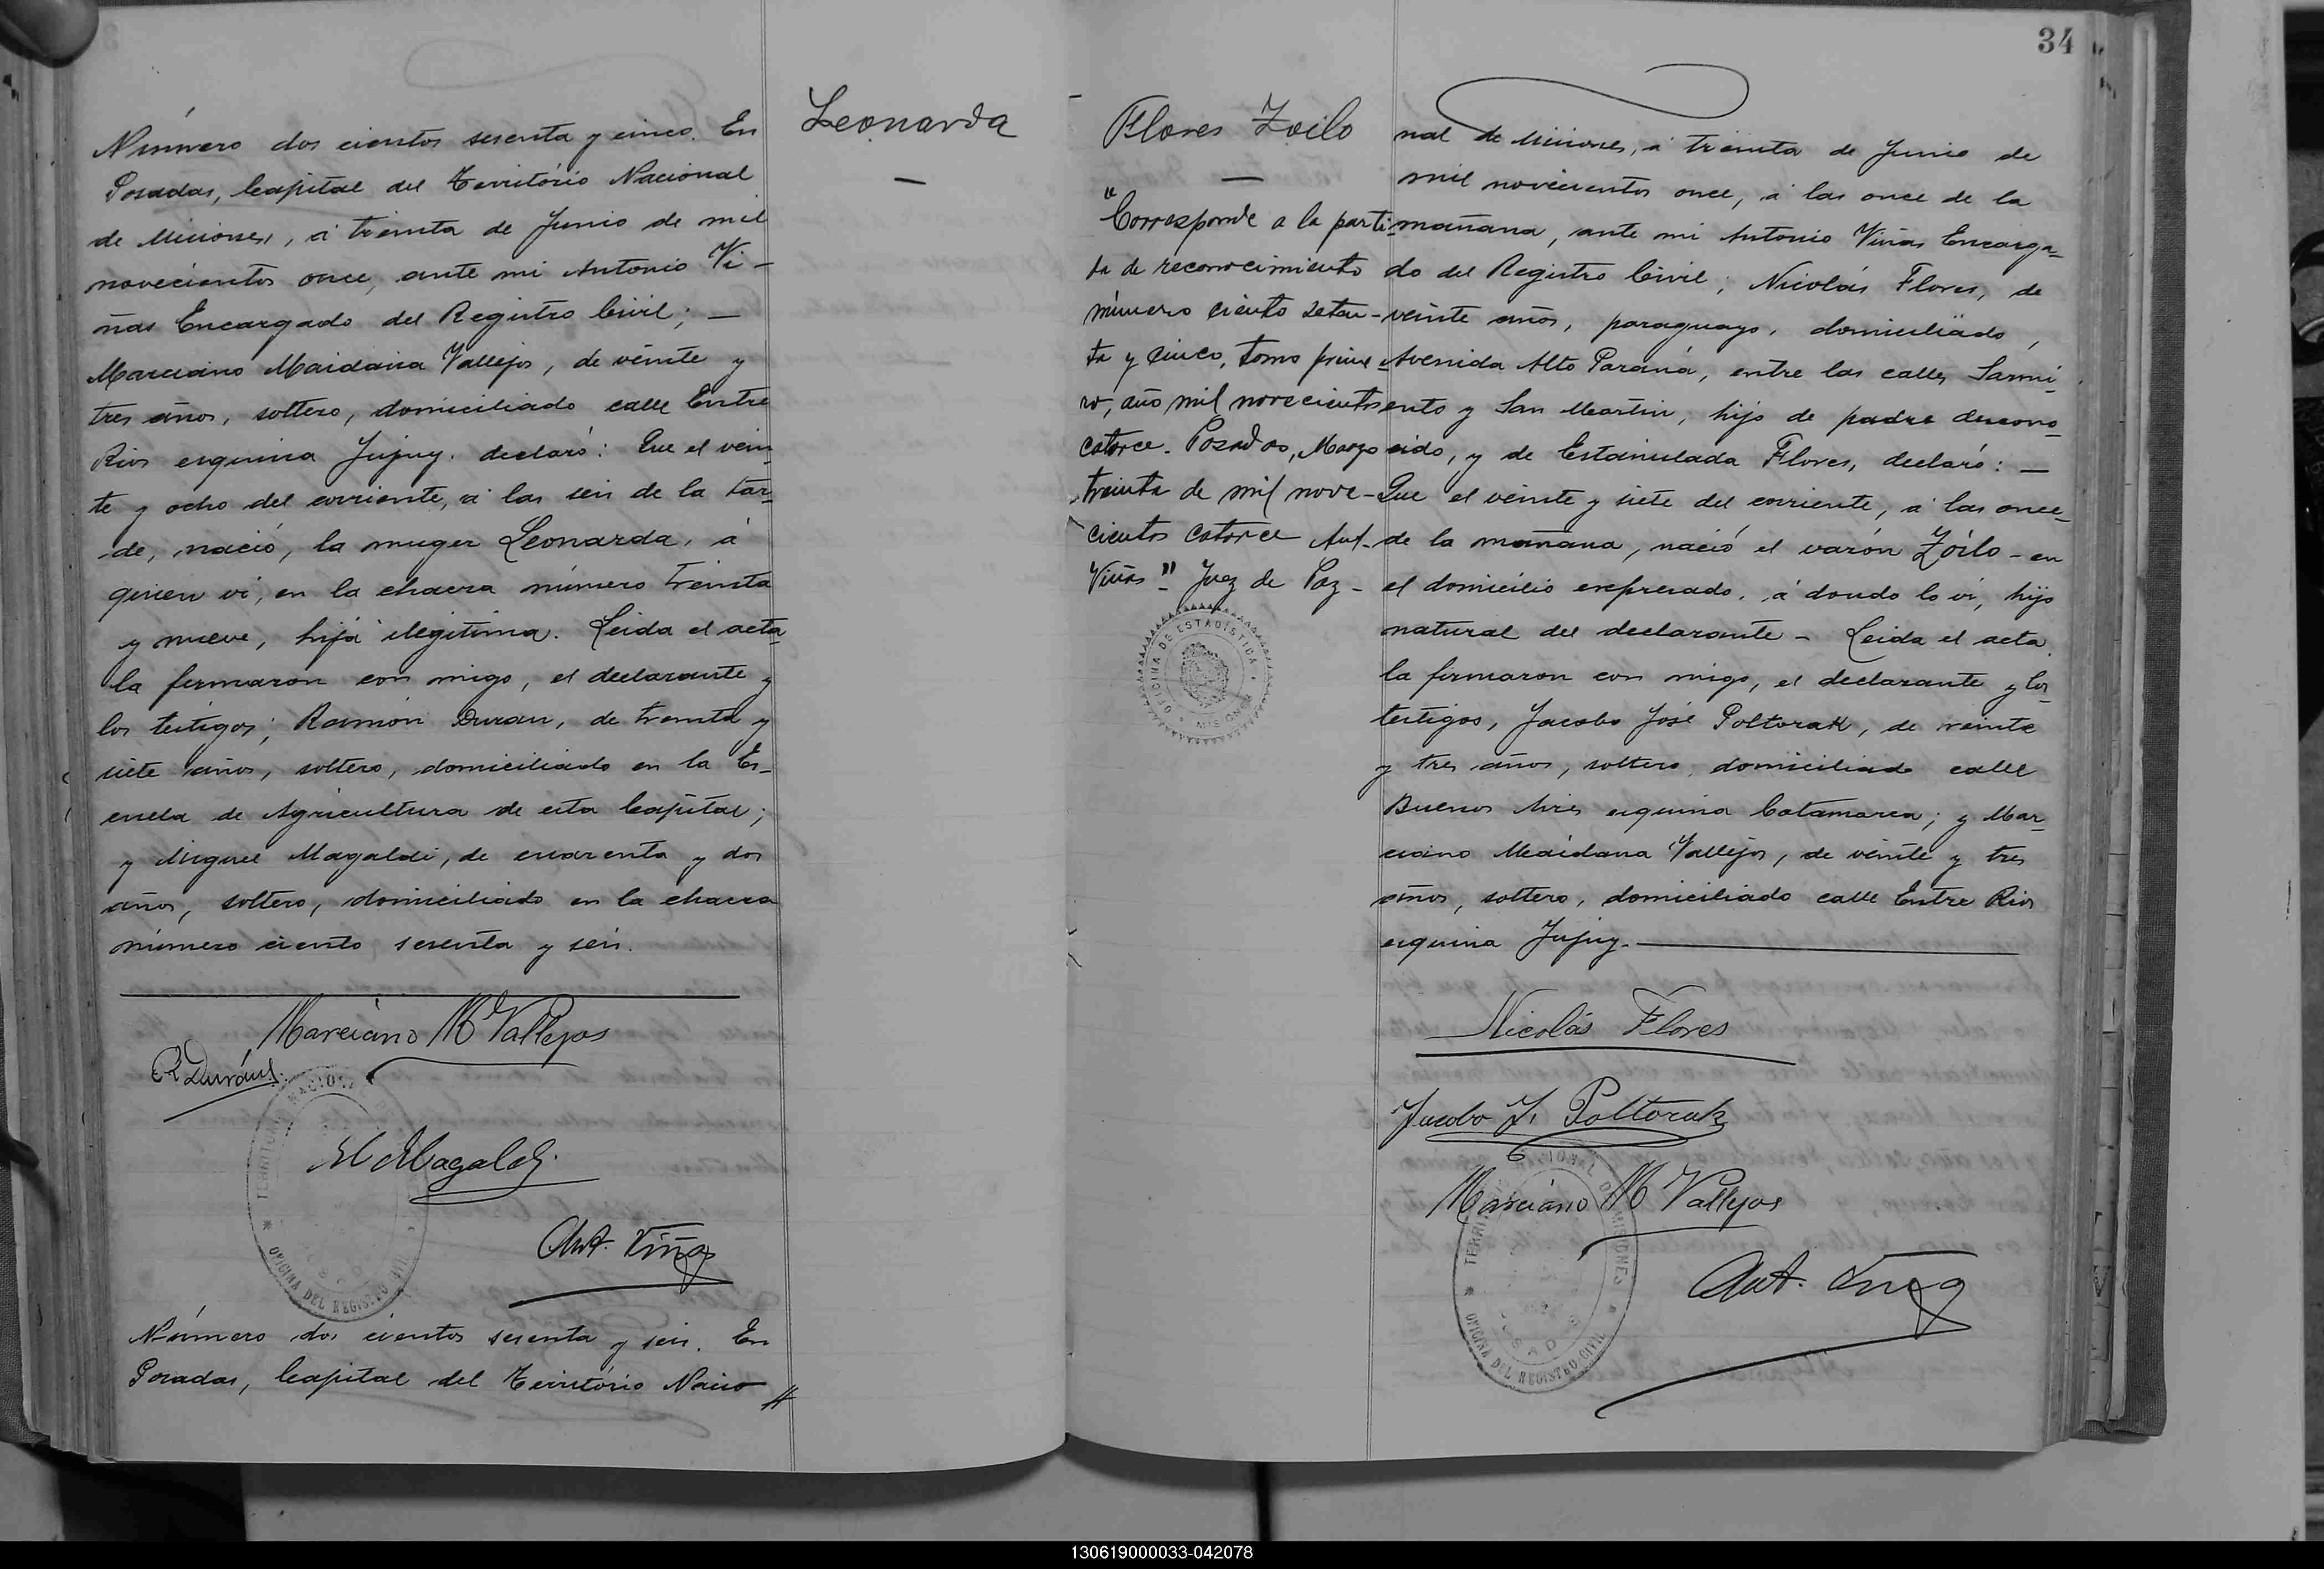 Número dos cientos sesenta y cinco. En
Posadas, Capital del Território Nacional
de Misiones, á treinta de Junio de mil
novecientos once, ante mi Antonio Vi-
ñas Encargado del Registro Civil; —
Marciano Maidana Vallejos, de veinte y
tres años, soltero, domiciliado calle Entre
Rios esquina Jujuy. declaró: Que el vein
te y ocho del corriente, á las seis de la tar-
de, nació, la muger Leonarda, á
quien vi, en la chacra número treinta
y nueve, hija ilegitima. Leida el acta
la firmaron con migo, el declarante y
los testigos; Ramón Duran, de treinta y
siete años, soltero, domiciliado en la Es-
cuela de Agricultura de esta Capital;
y Miguel Magaldi, de cuarenta y dos
años, soltero, domiciliado en la chacra
número ciento sesenta y seis.
Marciano M Vallejos
R Durán
M Magaldi
Ant. Viñas
TERRITORIO NACIONAL DE
OFICINA DEL REGISTRO CIVIL
Número dos cientos sesenta y seis. En
Posadas, Capital del Território Nacio
Leonarda
—
34
Flores Zoilo
—
"Corresponde a la parti-
da de reconocimiento
número ciento seten-
ta y cinco, tomo prime-
ro, año mil novecientos
catorce. Posadas, Marzo
treinta de mil nove-
cientos catorce Ant.
Viñas" Juez de Paz -
OFICINA DE ESTADISTICA
MISIONES
nal de Misiones, á treinta de Junio de
mil novecientos once, á las once de la
mañana, ante mi Antonio Viñas Encarga-
do del Registro Civil; Nicolás Flores, de
veinte años, paraguayo, domiciliado,
Avenida Alto Paraná, entre las calles Sarmi-
ento y San Martin, hijo de padre descono-
cido, y de Estanislada Flores, declaró: —
Que el veinte y siete del corriente, á las once-
de la mañana, nació el varón Zoilo - en
el domicilio expresado, á donde lo vi, hijo
natural del declarante - Leida el acta
la firmaron con migo, el declarante y los
testigos, Jacobo José Poltorak, de veinte
y tres años, soltero, domiciliado calle
Buenos Aires esquina Catamarca; y Mar-
ciano Maidana Vallejos, de veinte y tres
años, soltero, domiciliado calle Entre Rios
esquina Jujuy.
Nicolás Flores
Jacobo J. Poltorak
Marciano M Vallejos
Ant. Viñas
OFICINA DEL REGISTRO CIVIL
130619000033-042078